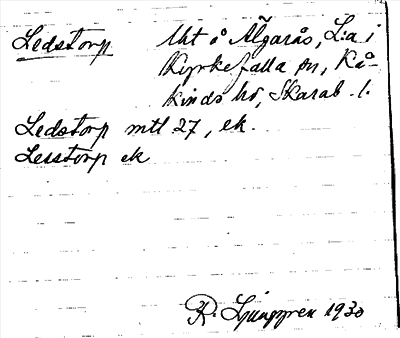 Ledstorp Utj å Älgarås, L:a i
Kyrkefalla sn, Kå-
kinds hd, Skarab. l.
Ledstorp mtl 27, ek.
Lesstorp ek
R. Ljunggren 1930